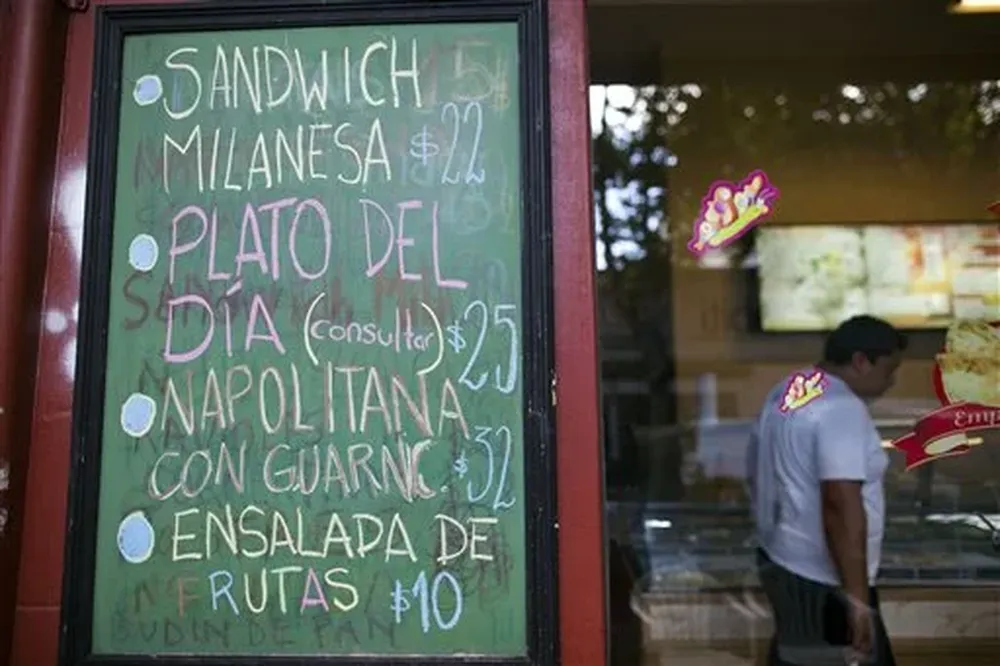 SANDWICH
MILANESA $22
PLATO DEL
DÍA (consultar) $25
NAPOLITANA
CON GUARNIC. $32
ENSALADA DE
FRUTAS $10
BUDIN DE PAN
Emp